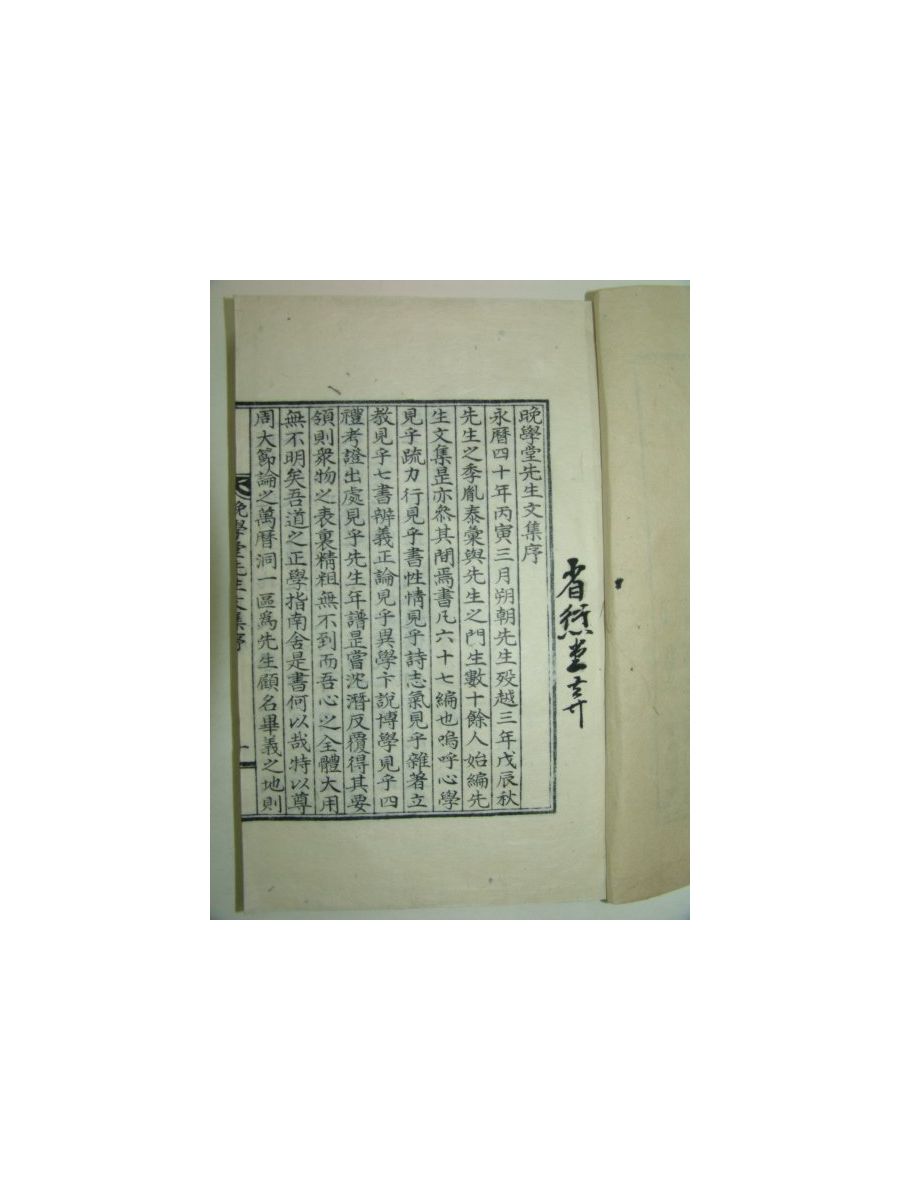 晩學堂先生文集序
永曆四十年丙寅三月朔朝先生歿越三年戊辰秋
先生之季胤泰彙與先生之門生數十餘人始編先
生文集是亦叅其間焉書凡六十七編也嗚呼心學
見乎疏力行見乎書性情見乎詩志氣見乎雜著立
敎見乎七書辨義正論見乎異學卞說博學見乎四
禮考證出處見乎先生年譜是嘗沉潛反覆得其要
領則衆物之表裏精粗無不到而吾心之全體大用
無不明矣吾道之正學指南舍是書何以哉特以尊
周大節論之萬曆洞一區爲先生顧名畢義之地則
晩學堂先生文集序
一